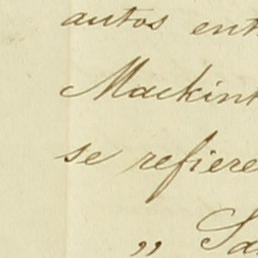 autos ent
Mackint
se refiere
" Sa